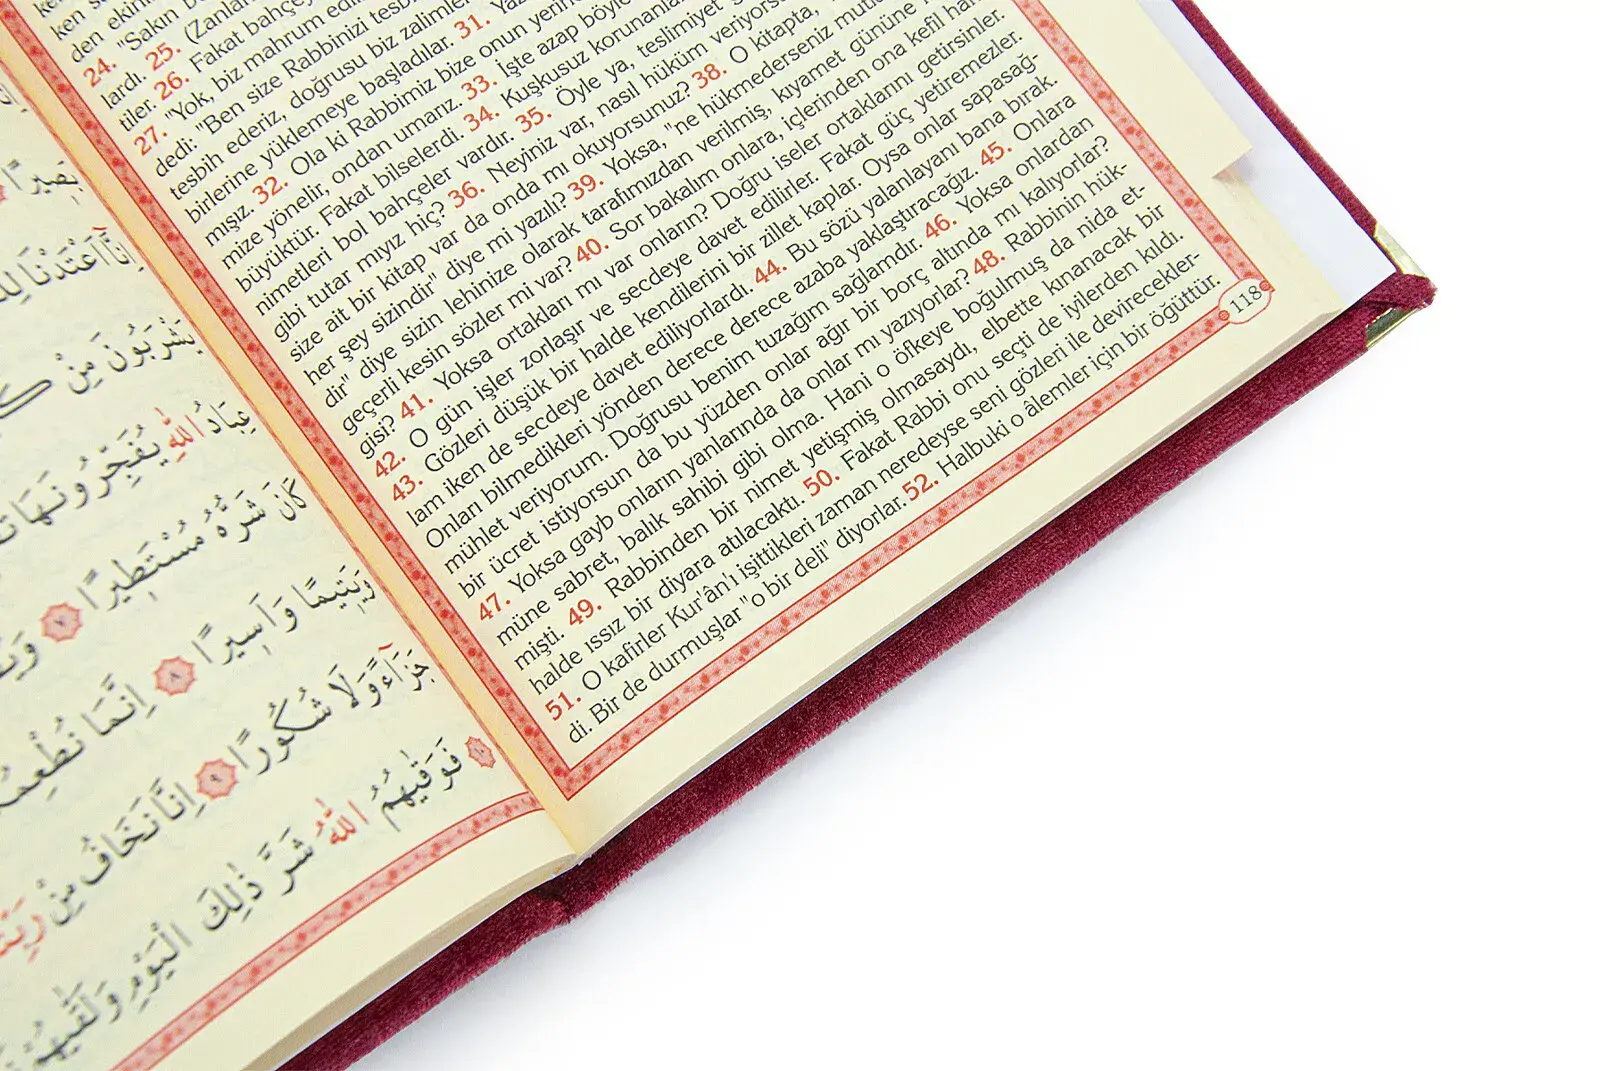 24. "Sakın
lardı. 25.
tiler. 26. Fakat bahçey
27. "Yok, biz mahrum edil
dedi: "Ben size Rabbinizi tesbi
tesbih ederiz, doğrusu biz zalimler
birlerine yüklemeye başladılar. 31.
mışız. 32. Ola ki Rabbimiz bize onun yerin
mize yönelir, ondan umarız. 33. İşte azap böyle
büyüktür. Fakat bilselerdi. 34. Kuşkusuz korunanla
nimetleri bol bahçeler vardır. 35. Öyle ya, teslimiyet
gibi tutar mıyız hiç? 36. Neyiniz var, nasıl hüküm veriyors
size ait bir kitap var da onda mı okuyorsunuz? 38. O kitapta,
her şey sizindir" diye mi yazılı? 39. Yoksa, "ne hükmederseniz
dir" diye sizin lehinize olarak tarafımızdan verilmiş, kıyamet gününe
geçerli kesin sözler mi var? 40. Sor bakalım onlara, içlerinden ona kefil han-
gisi? 41. Yoksa ortakları mı var onların? Doğru iseler ortaklarını getirsinler.
42. O gün işler zorlaşır ve secdeye davet edilirler. Fakat güç yetiremezler.
43. Gözleri düşük bir halde kendilerini bir zillet kaplar. Oysa onlar sapasağ-
lam iken de secdeye davet ediliyorlardı. 44. Bu sözü yalanlayanı bana bırak.
Onları bilmedikleri yönden derece derece azaba yaklaştıracağız. 45. Onlara
mühlet veriyorum. Doğrusu benim tuzağım sağlamdır. 46. Yoksa onlardan
bir ücret istiyorsun da bu yüzden onlar ağır bir borç altında mı kalıyorlar?
47. Yoksa gayb onların yanlarında da onlar mı yazıyorlar? 48. Rabbinin hük-
müne sabret, balık sahibi gibi olma. Hani o öfkeye boğulmuş da nida et-
mişti. 49. Rabbinden bir nimet yetişmiş olmasaydı, elbette kınanacak bir
halde ıssız bir diyara atılacaktı. 50. Fakat Rabbi onu seçti de iyilerden kıldı.
51. O kafirler Kur'ân'ı işittikleri zaman neredeyse seni gözleri ile devirecekler-
di. Bir de durmuşlar "o bir deli" diyorlar. 52. Halbuki o âlemler için bir öğüttür.
118
بَصِيرًا
اِنَّٓا اَعْتَدْنَا
يَشْرَبُونَ مِنْ
عِبَادُ اللّٰهِ يُفَجِّرُونَهَا
كَانَ شَرُّهُ مُسْتَطِيرًا ٧
وَيَتِيمًا وَاَسِيرًا ٨ اِنَّمَا
جَزَٓاءً وَلَا شُكُورًا ٩ اِنَّا نَخَافُ مِنْ
١٠ فَوَقٰيهُمُ اللّٰهُ شَرَّ ذٰلِكَ الْيَوْمِ وَلَقّٰيهُمْ